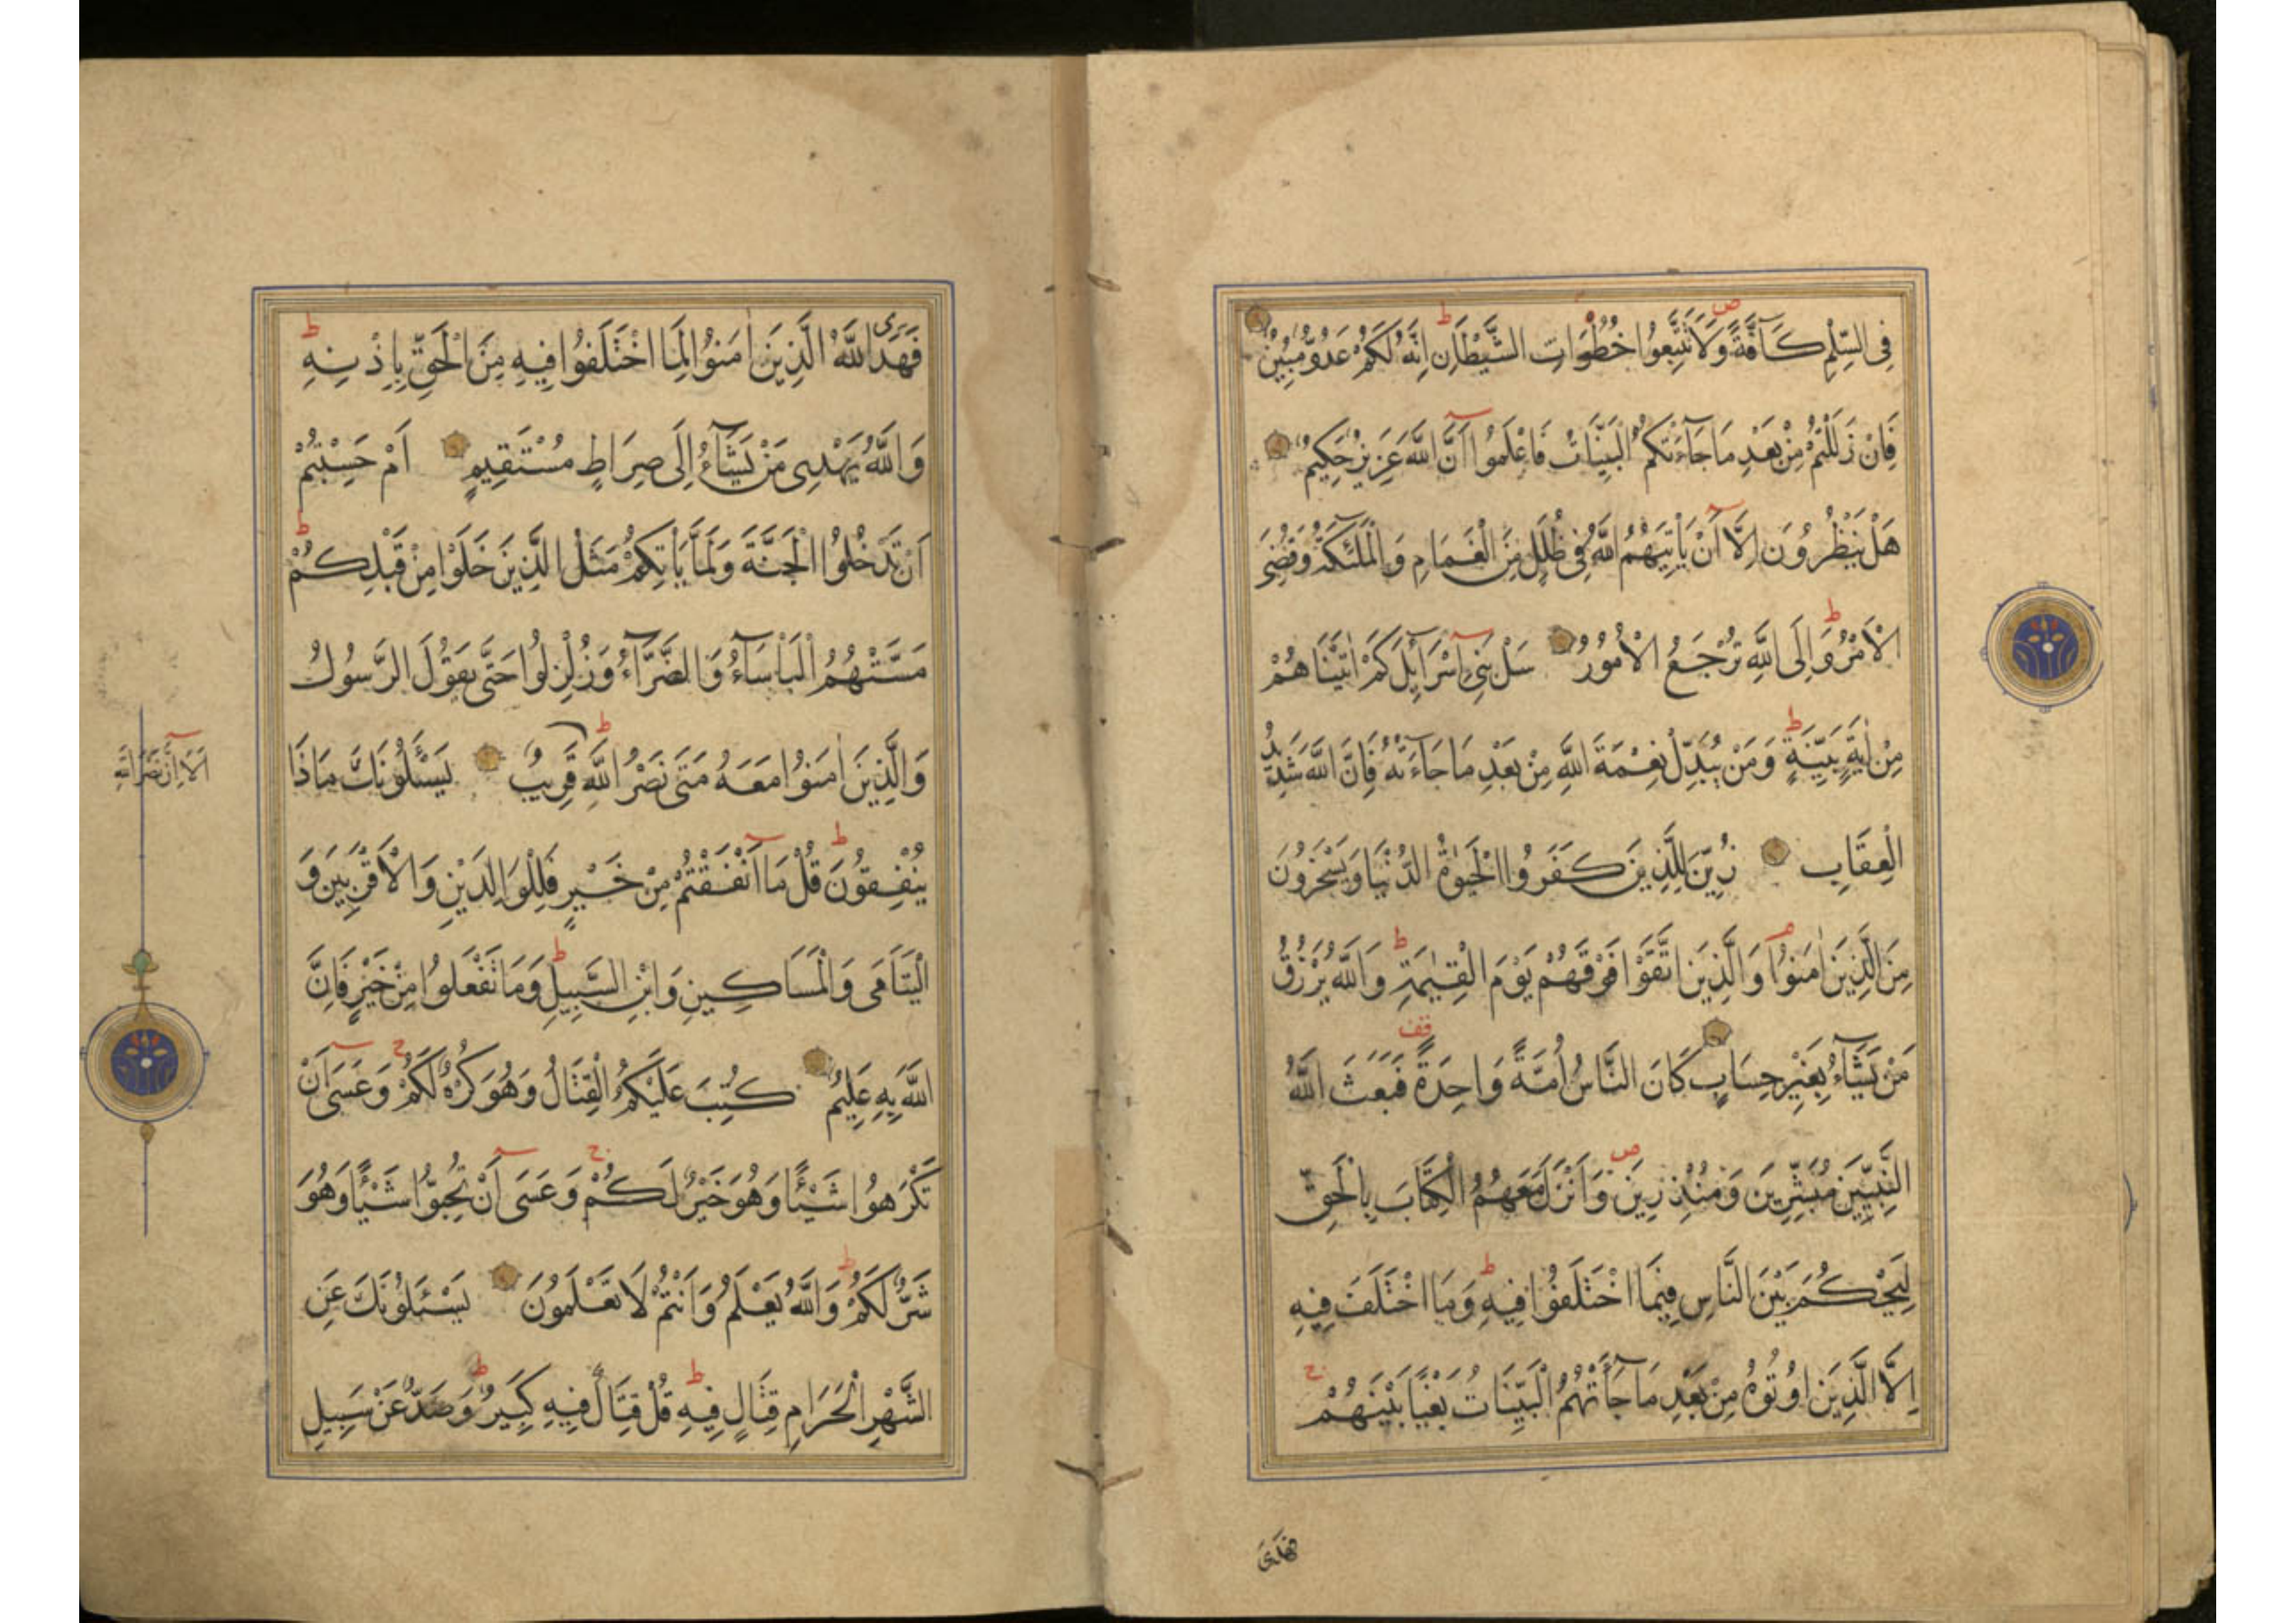 فِى السِّلْمِ كَآفَّةً وَلَا تَتَّبِعُوا خُطُوَاتِ الشَّيْطَانِ اِنَّهُ لَكُمْ عَدُوٌّ مُبِينٌ
فَاِنْ زَلَلْتُمْ مِنْ بَعْدِ مَا جَآءَتْكُمُ الْبَيِّنَاتُ فَاعْلَمُوا اَنَّ اللَّهَ عَزِيزٌ حَكِيمٌ
هَلْ يَنْظُرُونَ اِلَّا اَنْ يَاْتِيَهُمُ اللَّهُ فِى ظُلَلٍ مِنَ الْغَمَامِ وَالْمَلٰئِكَةُ وَقُضِىَ
الْاَمْرُ وَاِلَى اللَّهِ تُرْجَعُ الْاُمُورُ سَلْ بَنِى اِسْرَآئِلَ كَمْ اٰتَيْنَاهُمْ
مِنْ اٰيَةٍ بَيِّنَةٍ وَمَنْ يُبَدِّلْ نِعْمَةَ اللَّهِ مِنْ بَعْدِ مَا جَآءَتْهُ فَاِنَّ اللَّهَ شَدِيدُ
الْعِقَابِ زُيِّنَ لِلَّذِينَ كَفَرُوا الْحَيٰوةُ الدُّنْيَا وَيَسْخَرُونَ
مِنَ الَّذِينَ اٰمَنُوا وَالَّذِينَ اتَّقَوْا فَوْقَهُمْ يَوْمَ الْقِيٰمَةِ وَاللَّهُ يَرْزُقُ
مَنْ يَشَآءُ بِغَيْرِ حِسَابٍ كَانَ النَّاسُ اُمَّةً وَاحِدَةً فَبَعَثَ اللَّهُ
النَّبِيِّينَ مُبَشِّرِينَ وَمُنْذِرِينَ وَاَنْزَلَ مَعَهُمُ الْكِتَابَ بِالْحَقِّ
لِيَحْكُمَ بَيْنَ النَّاسِ فِيمَا اخْتَلَفُوا فِيهِ وَمَا اخْتَلَفَ فِيهِ
اِلَّا الَّذِينَ اُوتُوهُ مِنْ بَعْدِ مَا جَآءَتْهُمُ الْبَيِّنَاتُ بَغْيًا بَيْنَهُمْ
فهدى
فَهَدَى اللَّهُ الَّذِينَ اٰمَنُوا لِمَا اخْتَلَفُوا فِيهِ مِنَ الْحَقِّ بِاِذْنِهِ
وَاللَّهُ يَهْدِى مَنْ يَشَآءُ اِلَى صِرَاطٍ مُسْتَقِيمٍ اَمْ حَسِبْتُمْ
اَنْ تَدْخُلُوا الْجَنَّةَ وَلَمَّا يَاْتِكُمْ مَثَلُ الَّذِينَ خَلَوْا مِنْ قَبْلِكُمْ
مَسَّتْهُمُ الْبَاْسَآءُ وَالضَّرَّآءُ وَزُلْزِلُوا حَتَّى يَقُولَ الرَّسُولُ
وَالَّذِينَ اٰمَنُوا مَعَهُ مَتَى نَصْرُ اللَّهِ قَرِيبٌ يَسْـَٔلُونَكَ مَاذَا
اَلَا اِنَّ نَصْرَ اللَّهِ
يُنْفِقُونَ قُلْ مَا اَنْفَقْتُمْ مِنْ خَيْرٍ فَلِلْوَالِدَيْنِ وَالْاَقْرَبِينَ وَ
الْيَتَامَى وَالْمَسَاكِينِ وَابْنِ السَّبِيلِ وَمَا تَفْعَلُوا مِنْ خَيْرٍ فَاِنَّ
اللَّهَ بِهِ عَلِيمٌ كُتِبَ عَلَيْكُمُ الْقِتَالُ وَهُوَ كُرْهٌ لَكُمْ وَعَسَى اَنْ
تَكْرَهُوا شَيْئًا وَهُوَ خَيْرٌ لَكُمْ وَعَسَى اَنْ تُحِبُّوا شَيْئًا وَهُوَ
شَرٌّ لَكُمْ وَاللَّهُ يَعْلَمُ وَاَنْتُمْ لَا تَعْلَمُونَ يَسْـَٔلُونَكَ عَنِ
الشَّهْرِ الْحَرَامِ قِتَالٍ فِيهِ قُلْ قِتَالٌ فِيهِ كَبِيرٌ وَصَدٌّ عَنْ سَبِيلِ